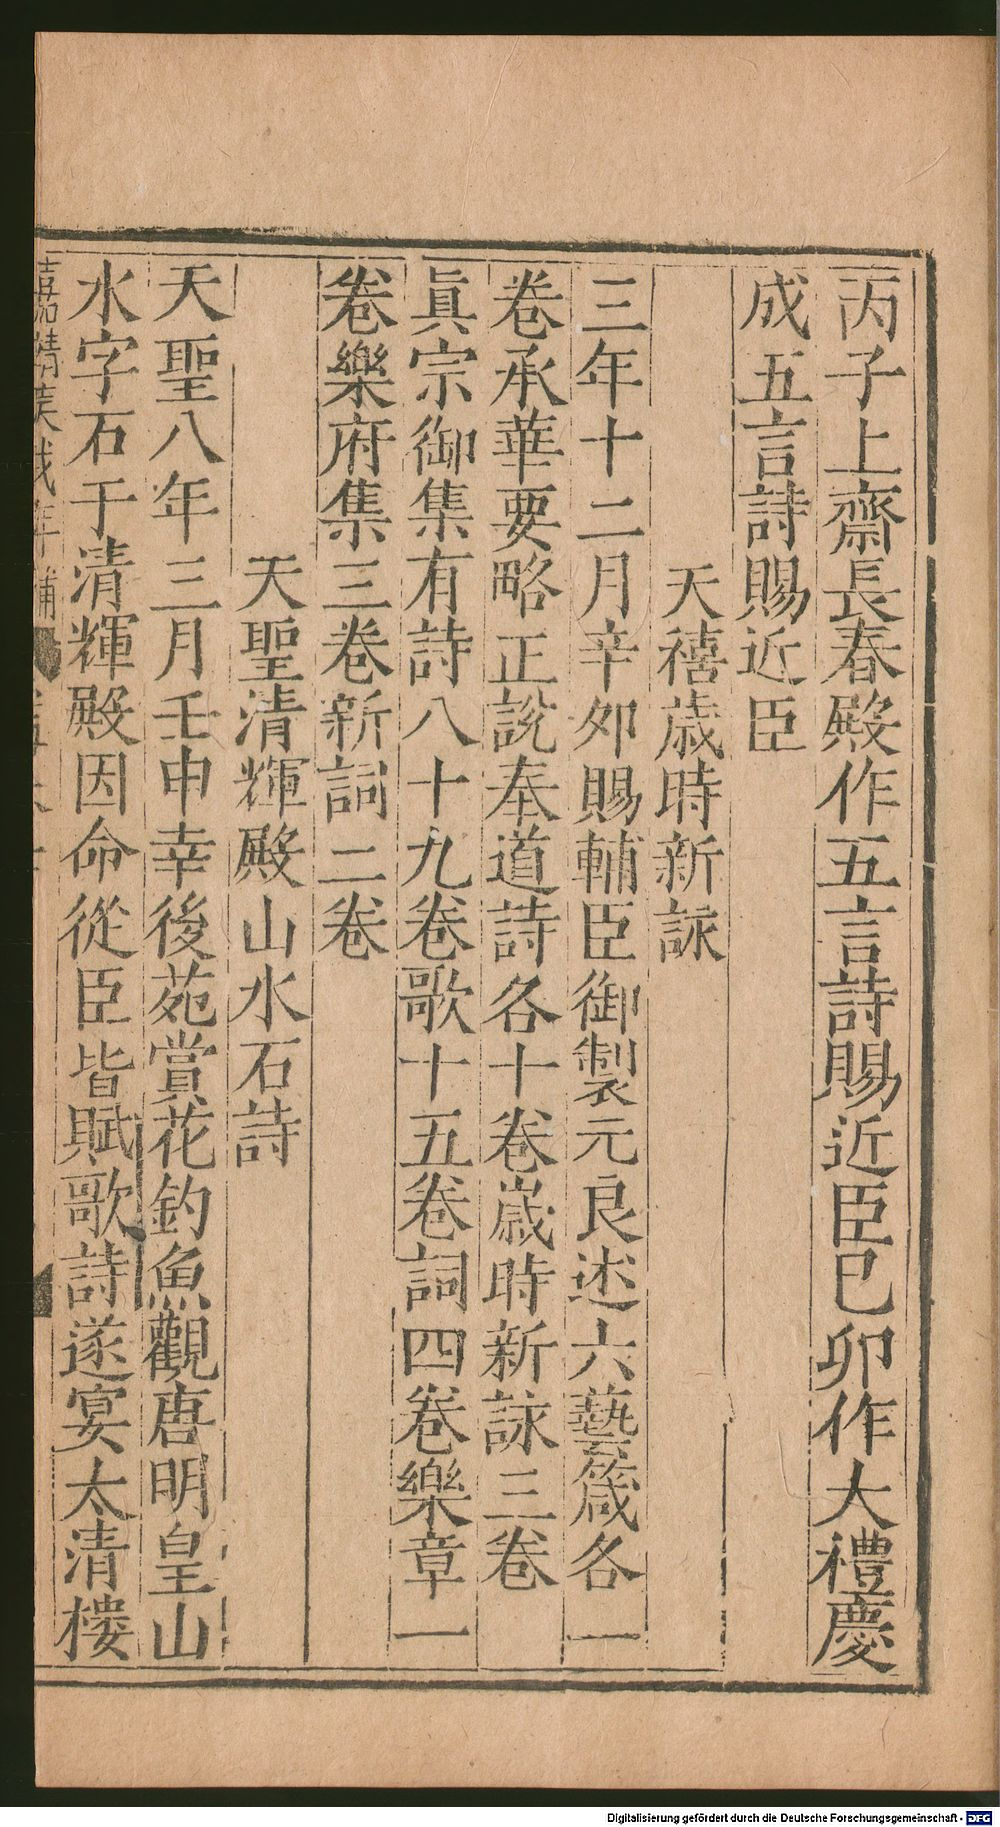 丙子上齋長春殿作五言詩賜近臣已卯作大禮慶
成五言詩賜近臣
天禧歳時新詠
三年十二月辛夘賜輔臣御製元良述六藝箴各一
卷承華要略正說奉道詩各十卷歳時新詠三卷
眞宗御集有詩八十九卷歌十五卷詞四卷樂章一
卷樂府集三卷新詞二卷
天聖清輝殿山水石詩
天聖八年三月壬申幸後苑賞花釣魚觀唐明皇山
水字石于清輝殿因命從臣皆賦歌詩遂宴太清樓
嘉靖 年補
Digitalisierung gefördert durch die Deutsche Forschungsgemeinschaft - DFG